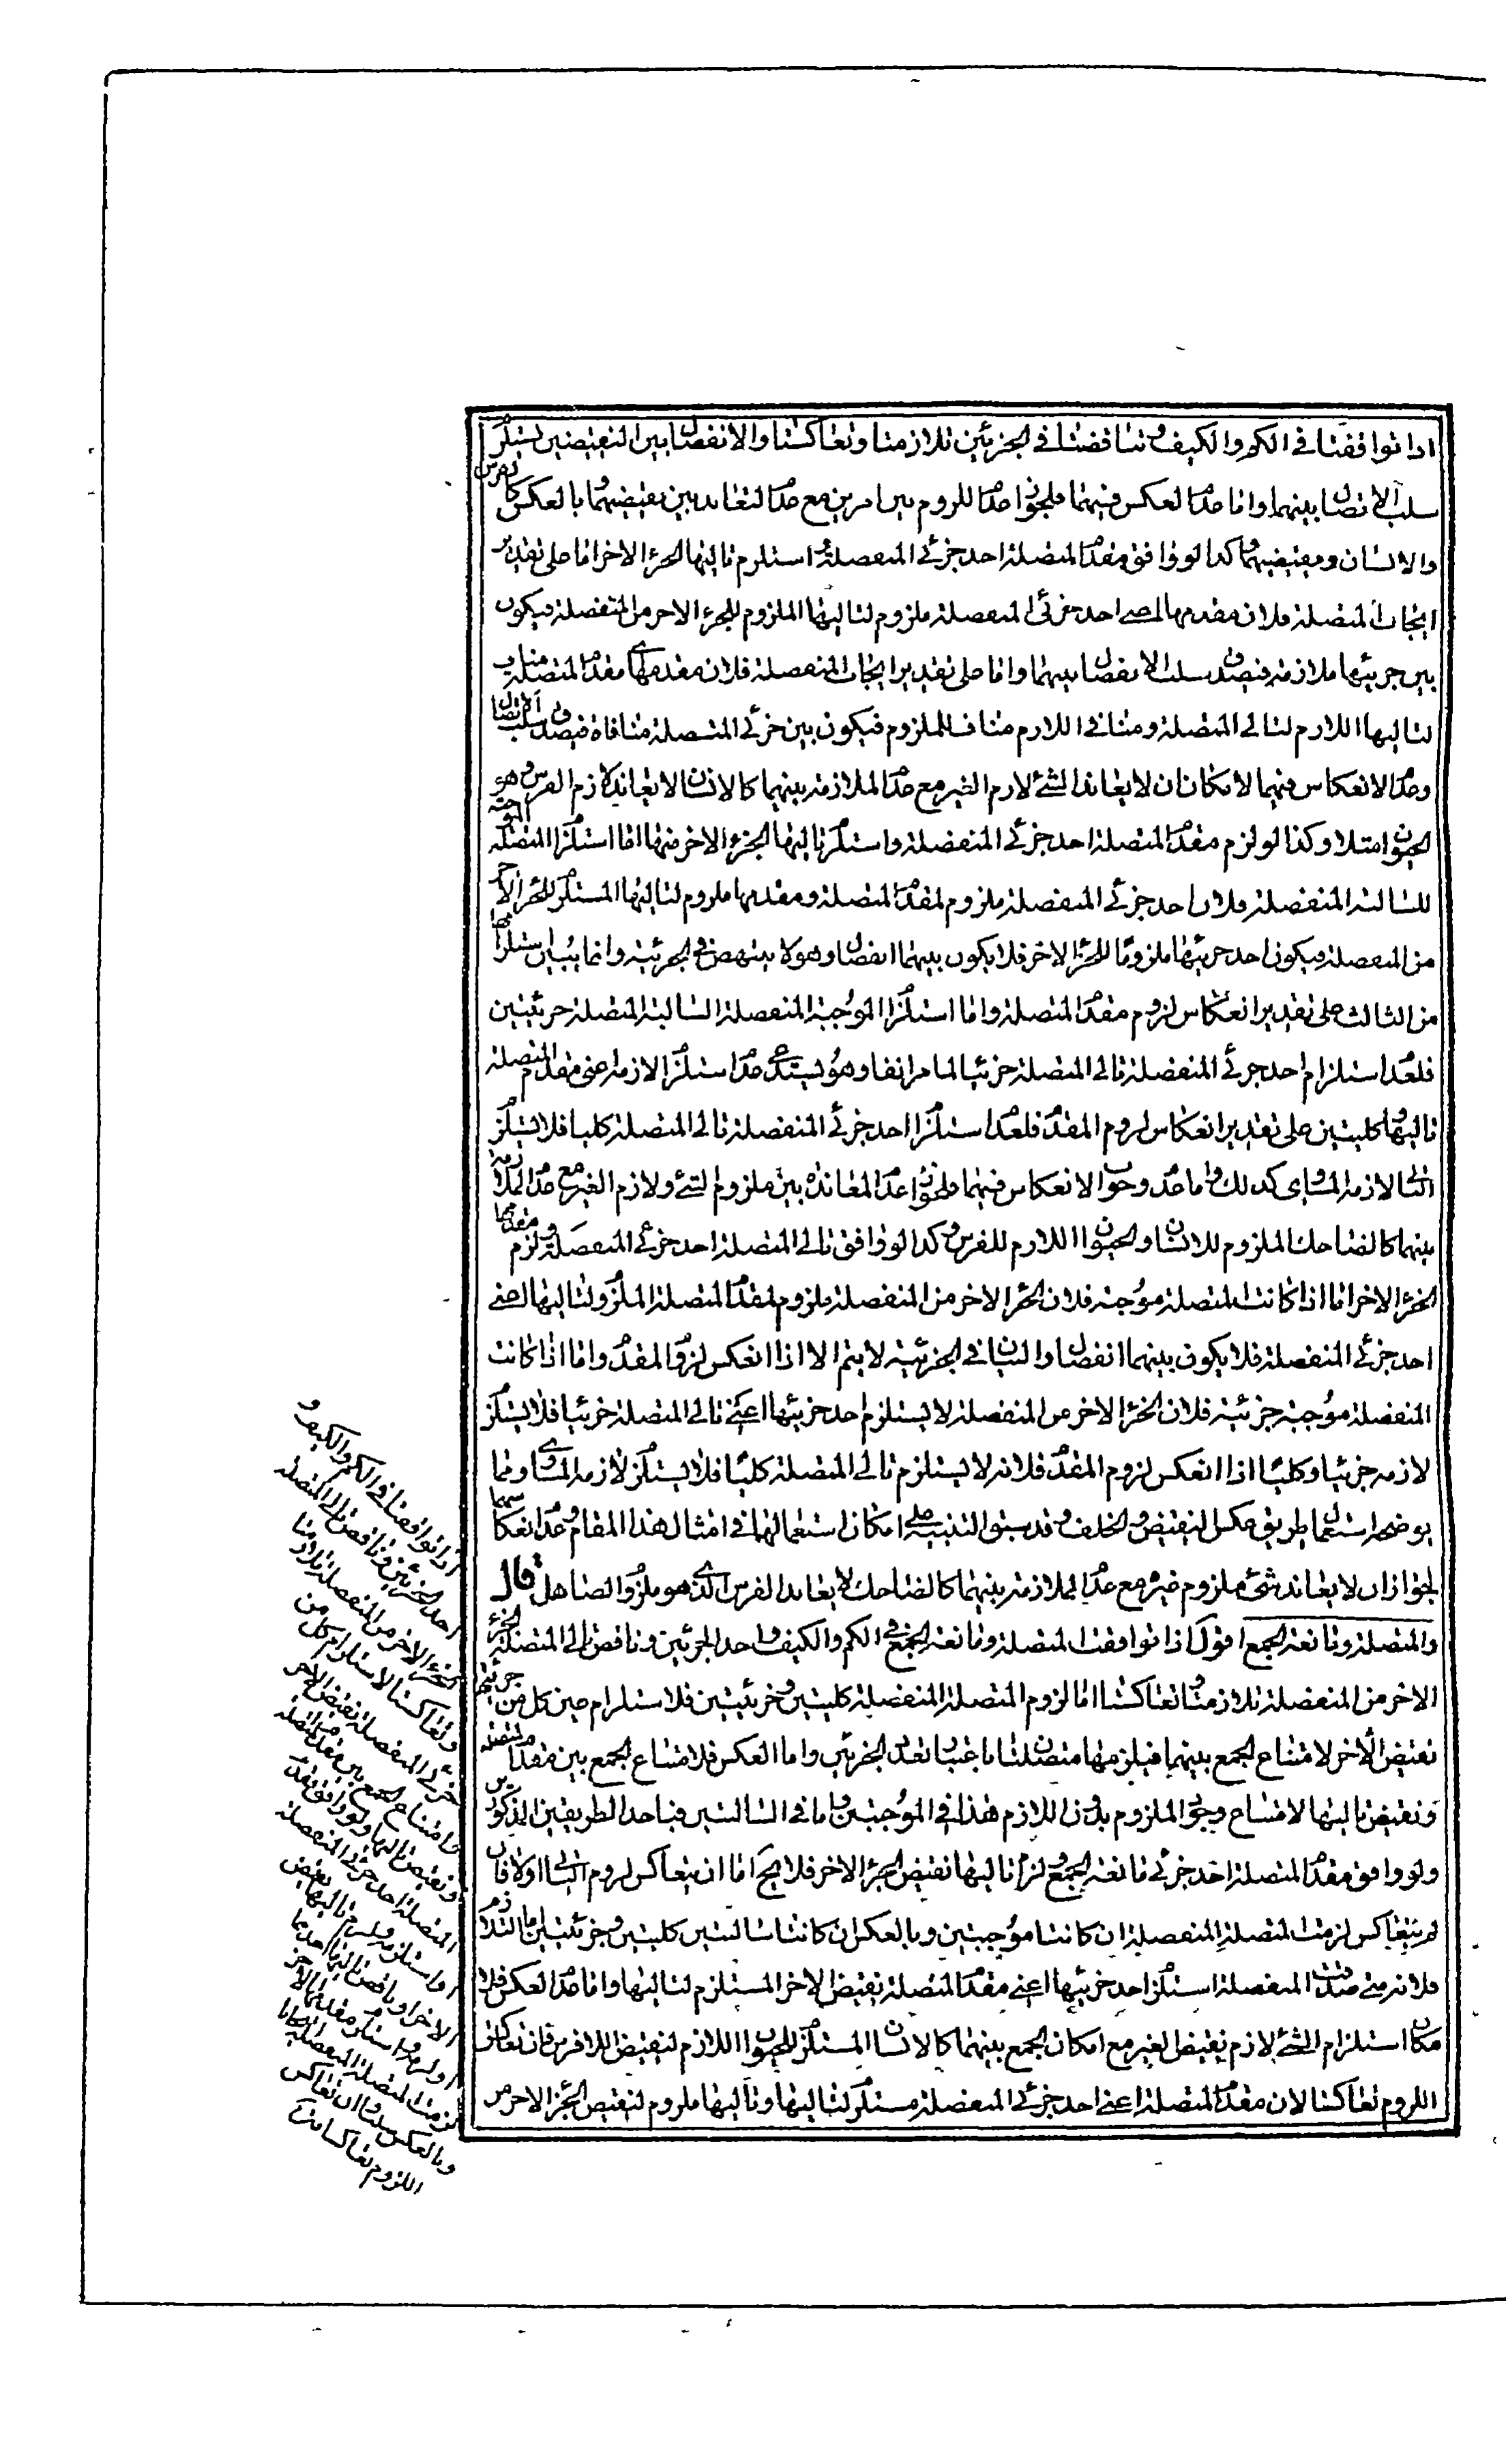 اذا توافقتا في الكم والكيف وتناقضتا في الجزئين تلازمتا وتعاكستا والانفصال بين النقيضين يستلزم
سلب الاتصال بينهما واما عدم العكس فيهما فلجواز عدم اللزوم بين امرين مع عدم التعاند بين نقيضيهما وبالعكس كالفرس
والانسان ونقيضيهما وكذا لو وافق مقدم المتصلة احد جزئي المنفصلة واستلزم تاليها الجزء الاخر اما على تقدير
ايجاب المتصلة فلان مقدمها اعني احد جزئي المنفصلة ملزوم لتاليها الملزوم للجزء الاخر من المنفصلة فيكون
بين جزئيها ملازمة فيصدق سلب الانفصال بينهما واما على تقدير ايجاب المنفصلة فلان مقدمها اي مقدم المتصلة مناف
لتاليها اللازم لتالي المتصلة ومنافي اللازم مناف للملزوم فيكون بين جزئي المتصلة منافاة فيصدق سلب الاتصال
وعدم الانعكاس فيهما لامكان ان لا يعاند الشئ لازم الغير مع عدم الملازمة بينهما كالانسان لا يعاند لازم الفرس وهو
الحيوان مثلا وكذا لو لزم مقدم المتصلة احد جزئي المنفصلة واستلزم تاليها الجزء الاخر منها اما استلزام المتصلة الموجبة
للسالبة المنفصلة فلان احد جزئي المنفصلة ملزوم لمقدم المتصلة ومقدمها ملزوم لتاليها المستلزم للجزء الاخر
من المنفصلة فيكون احد جزئيها ملزوما للجزء الاخر فلا يكون بينهما انفصال وهو لا ينتهض في الجزئية وانما يتبين استلزامها
من الثالث على تقدير انعكاس لزوم مقدم المتصلة واما استلزام الموجبة المنفصلة السالبة المتصلة جزئيتين
فلعدم استلزام احد جزئي المنفصلة تالي المتصلة جزئيا لما مر انفا وهو يستدعي عدم استلزام لازمه اعني مقدم المتصلة
تاليها وكليتين على تقدير انعكاس لزوم المقدم فلعدم استلزام احد جزئي المنفصلة تالي المتصلة كليا فلا يستلزم
التالي لازمه المساوي كذلك واما عدم وجوب الانعكاس فيهما فلجواز عدم المعاندة بين ملزوم الشئ ولازم الغير مع عدم الملازمة
بينهما كالضاحك الملزوم للانسان والحيوان اللازم للفرس وكذا لو وافق تالي المتصلة احد جزئي المنفصلة ولزم مقدمها
الجزء الاخر اما اذا كانت المتصلة موجبة فلان الجزء الاخر من المنفصلة ملزوم لمقدم المتصلة الملزوم لتاليها اعني
احد جزئي المنفصلة فلا يكون بينهما انفصال والبيان في الجزئية لا يتم الا اذا انعكس لزوم المقدم واما اذا كانت
المنفصلة موجبة جزئية فلان الجزء الاخر من المنفصلة لا يستلزم احد جزئيها اعني تالي المتصلة جزئيا فلا يستلزم
لازمه جزئيا وكليا اذا انعكس لزوم المقدم فلانه لا يستلزم تالي المتصلة كليا فلا يستلزم لازمه المساوي ومما
يوضحه استعمال طريق عكس النقيض والخلف وقد سبق التنبيه على امكان استعمالهما في امثال هذا المقام وعدم انعكاسهما
لجواز ان لا يعاند شئ ملزوم غيره مع عدم الملازمة بينهما كالضاحك لا يعاند الفرس الذي هو ملزوم الصاهل قال
والمتصلة ومانعة الجمع اقول اذا توافقت المتصلة ومانعة الجمع في الكم والكيف واحد الجزئين وناقض تالي المتصلة الجزء
الاخر من المنفصلة تلازمتا وتعاكستا اما لزوم المتصلة المنفصلة كليتين وجزئيتين فلاستلزام عين كل من جزئيها
نقيض الاخر لامتناع الجمع بينهما فيلزمها متصلتان باعتبار تعدد الجزئين واما العكس فلامتناع الجمع بين مقدم المتصلة
ونقيض تاليها لامتناع وجود الملزوم بدون اللازم هذا في الموجبتين واما في السالبتين فباحد الطريقين المذكورين
ولو وافق مقدم المتصلة احد جزئي مانعة الجمع ولزم تاليها نقيض الجزء الاخر فلا يخ اما ان يتعاكس لزوم التالي اولا فان
لم يتعاكس لزمت المتصلة المنفصلة ان كانتا موجبتين وبالعكس ان كانتا سالبتين كليتين وجزئيتين اما التلازم
فلانه متى صدقت المنفصلة استلزم احد جزئيها اعني مقدم المتصلة نقيض الاخر المستلزم لتاليها واما عدم العكس فلا
مكان استلزام الشئ لازم نقيض الغير مع امكان الجمع بينهما كالانسان المستلزم للحيوان اللازم لنقيض اللافرس فان تعاكس
اللزوم تعاكستا لان مقدم المتصلة اعني احد جزئي المنفصلة مستلزم لتاليها وتاليها ملزوم لنقيض الجزء الاخر من
اذا توافقتا في الكم والكيف و
احد الجزئين وناقض تالي المتصلة
الجزء الاخر من المنفصلة تلازمتا
وتعاكستا لاستلزام كل من
جزئي المنفصلة نقيض الاخر
وامتناع الجمع بين مقدم المتصلة
ونقيض تاليها ولو وافق مقدم
المتصلة احد جزئي المنفصلة